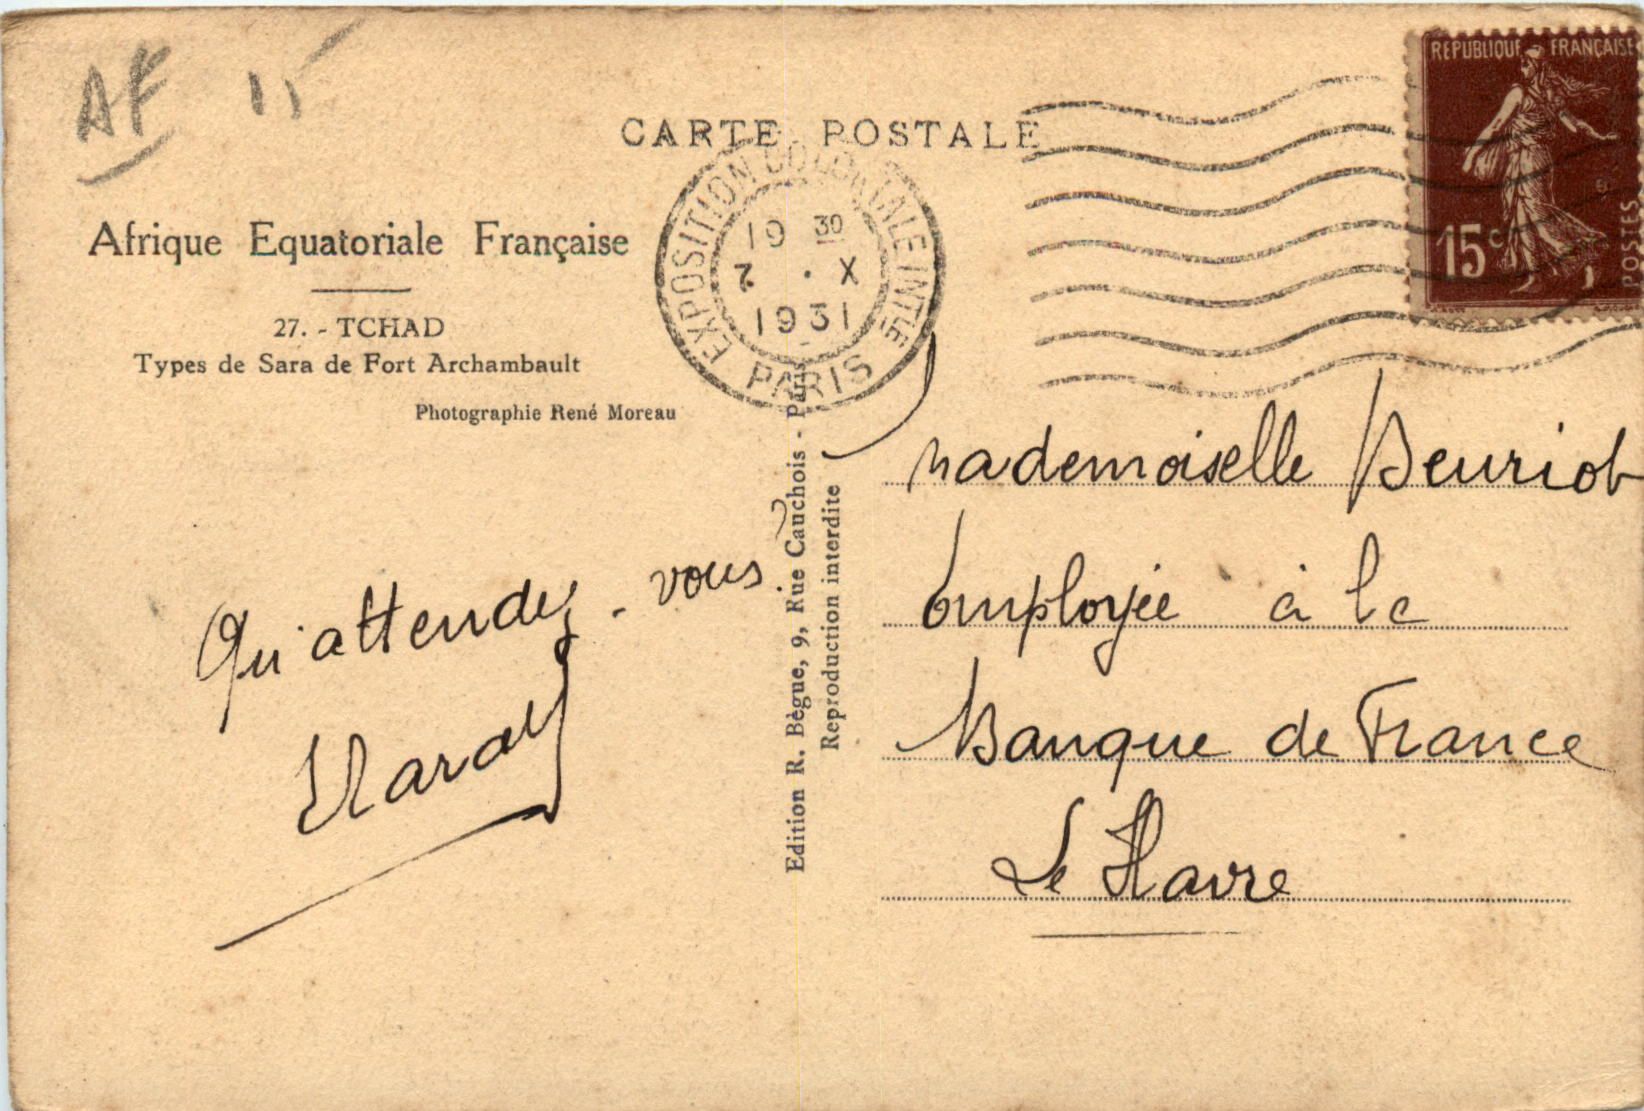 AF 15
CARTE POSTALE
REPUBLIQUE FRANÇAISE
15c
POSTES
EXPOSITION COLONIALE INTLE
19 30
7 · X
1931
PARIS
Afrique Equatoriale Française
27. - TCHAD
Types de Sara de Fort Archambault
Photographie René Moreau
Qu'attendez-vous?
Edition R. Bègue, 9, Rue Cauchois - Paris
Reproduction interdite
Mademoiselle
Employée à la
Banque de France
Le Havre